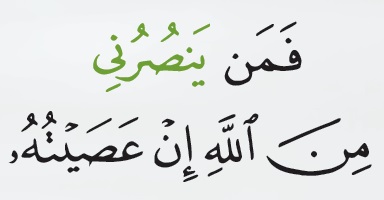 فَمَن يَنصُرُنِي
مِنَ ٱللَّهِ إِنۡ عَصَيۡتُهُۥ